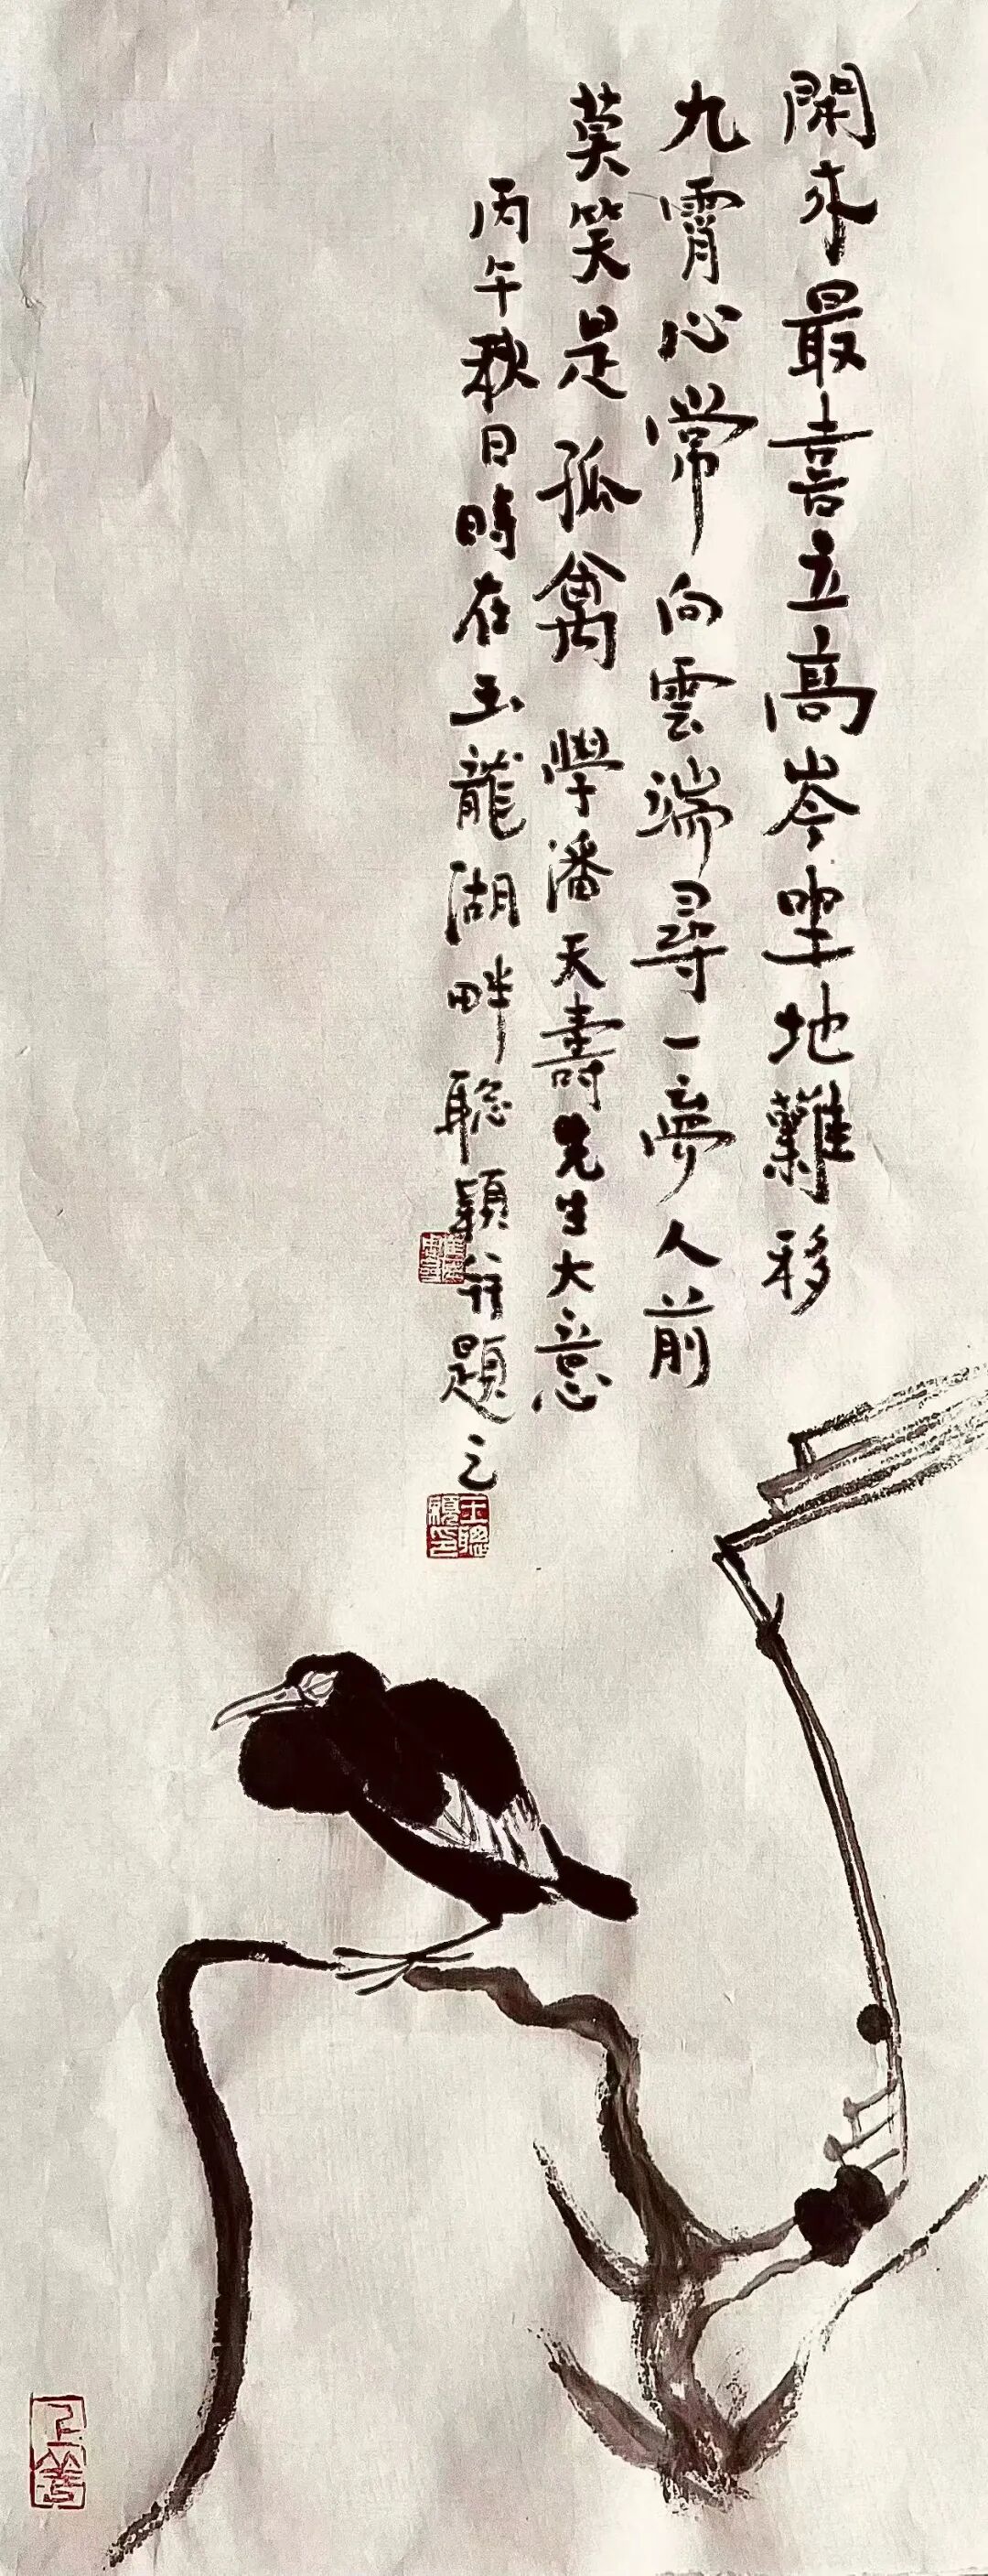 閑來最喜立高岑聖地難移
九霄心常向雲端尋一夢人前
莫笑是孤禽 學潘天壽先生大意
丙午秋日時在玉龍湖畔聪穎并題之
王聰穎印
上善